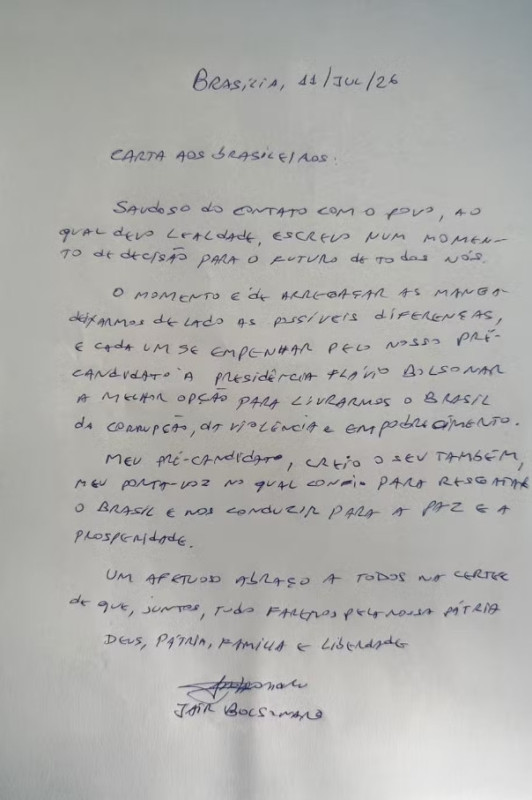 BRASÍLIA, 11/JUL/26
CARTA AOS BRASILEIROS.
SAUDOSO DO CONTATO COM O POVO, AO
QUAL DEVO LEALDADE, ESCREVO NUM MOMEN-
TO DE DECISÃO PARA O FUTURO DE TODOS NÓS.
O MOMENTO É DE ARREGAÇAR AS MANGA
DEIXARMOS DE LADO AS POSSÍVEIS DIFERENÇAS,
E CADA UM SE EMPENHAR PELO NOSSO PRÉ-
CANDIDATO À PRESIDÊNCIA FLÁVIO BOLSONAR
A MELHOR OPÇÃO PARA LIVRARMOS O BRASIL
DA CORRUPÇÃO, DA VIOLÊNCIA E EMPOBRECIMENTO.
MEU PRÉ-CANDIDATO, CREIO O SEU TAMBÉM,
MEU PORTA-VOZ NO QUAL CONFIO PARA RESGATAR
O BRASIL E NOS CONDUZIR PARA A PAZ E A
PROSPERIDADE.
UM AFETUOSO ABRAÇO A TODOS NA CERTEZ
DE QUE, JUNTOS, TUDO FAREMOS PELA NOSSA PÁTRIA
DEUS, PÁTRIA, FAMÍLIA E LIBERDADE
JAIR BOLSONARO